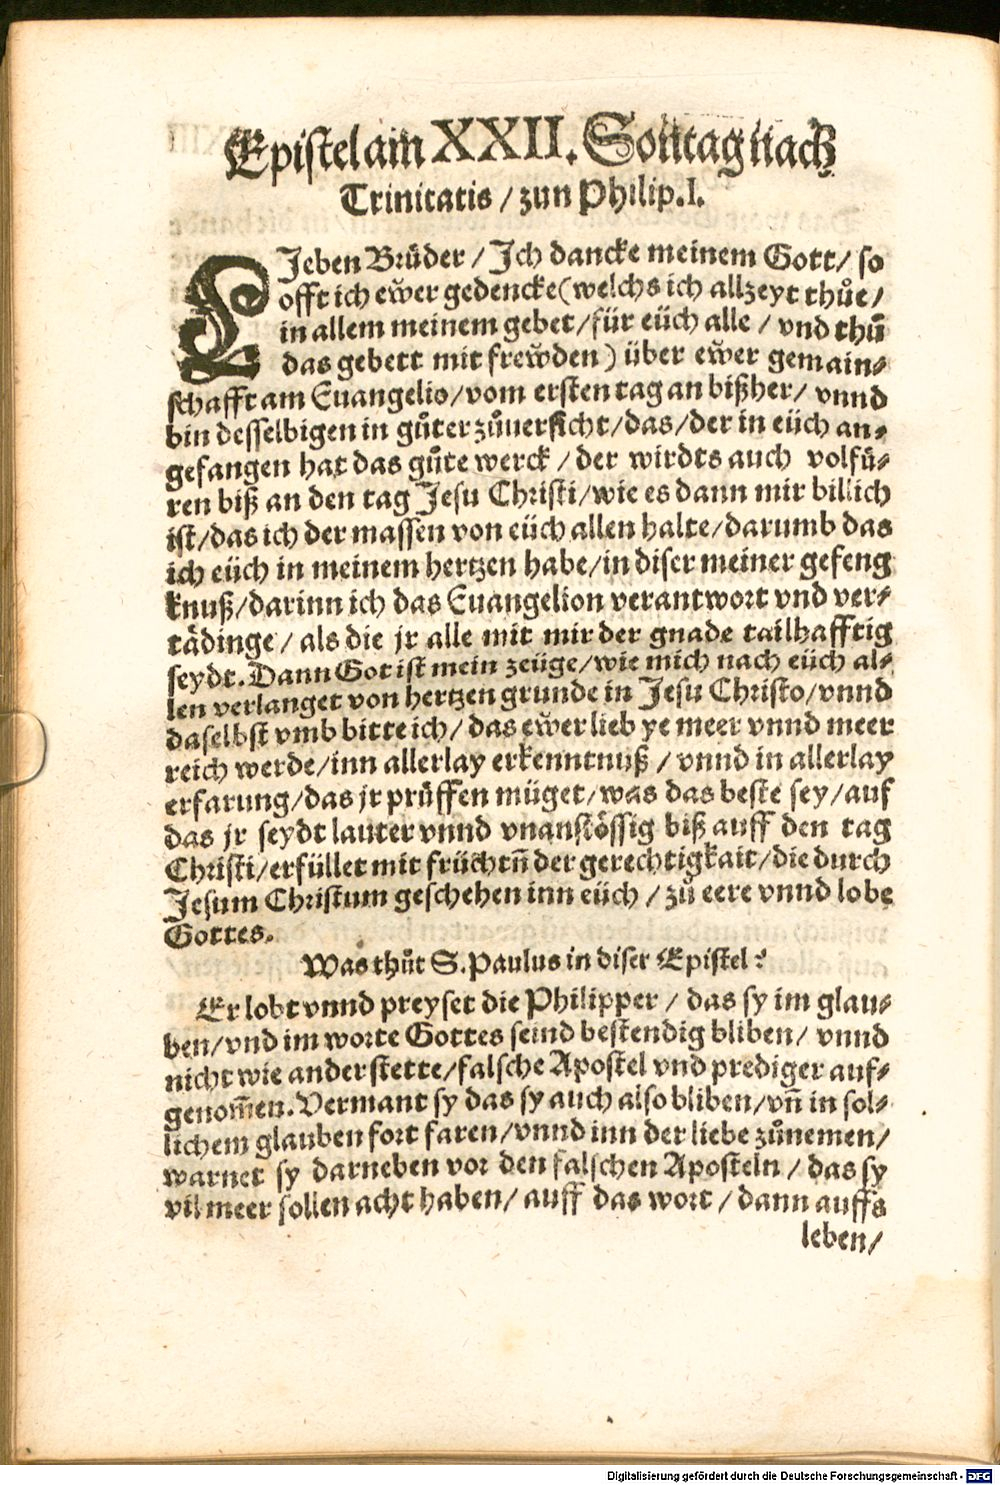 Epistel am XXII. Sontag nach
Trinitatis / zun Philip. I.
LIeben Brüder / Ich dancke meinem Gott / so
offt ich ewer gedencke (welchs ich allzeyt thůe /
in allem meinem gebet / für eüch alle / vnd thů
das gebett mit frewden) über ewer gemain⸗
schafft am Euangelio / vom ersten tag an bißher / vnnd
bin desselbigen in gůter zůuersicht / das / der in eüch an⸗
gefangen hat das gůte werck / der wirdts auch volfü⸗
ren biß an den tag Jesu Christi / wie es dann mir billich
ist / das ich der massen von eüch allen halte / darumb das
ich eüch in meinem hertzen habe / in diser meiner gefeng
knuß / darinn ich das Euangelion verantwort vnd ver⸗
tädinge / als die jr alle mit mir der gnade tailhafftig
seydt. Dann Got ist mein zeüge / wie mich nach eüch al⸗
len verlanget von hertzen grunde in Jesu Christo / vnnd
daselbst vmb bitte ich / das ewer lieb ye meer vnnd meer
reich werde / inn allerlay erkenntnuß / vnnd in allerlay
erfarung / das jr prüffen müget / was das beste sey / auf
das jr seydt lauter vnnd vnanstössig biß auff den tag
Christi / erfüllet mit früchtn̄ der gerechtigkait / die durch
Jesum Christum geschehen inn eüch / zů eere vnnd lobe
Gottes.
Was thůt S. Paulus in diser Epistel?
Er lobt vnnd preyset die Philipper / das sy im glau⸗
ben / vnd im worte Gottes seind bestendig bliben / vnnd
nicht wie ander stette / falsche Apostel vnd prediger auf⸗
genom̄en. Vermant sy das sy auch also bliben / vn̄ in sol⸗
lichem glauben fort faren / vnnd inn der liebe zůnemen /
warnet sy darneben vor den falschen Aposteln / das sy
vil meer sollen acht haben / auff das wort / dann auffs
leben /
Digitalisierung gefördert durch die Deutsche Forschungsgemeinschaft - DFG